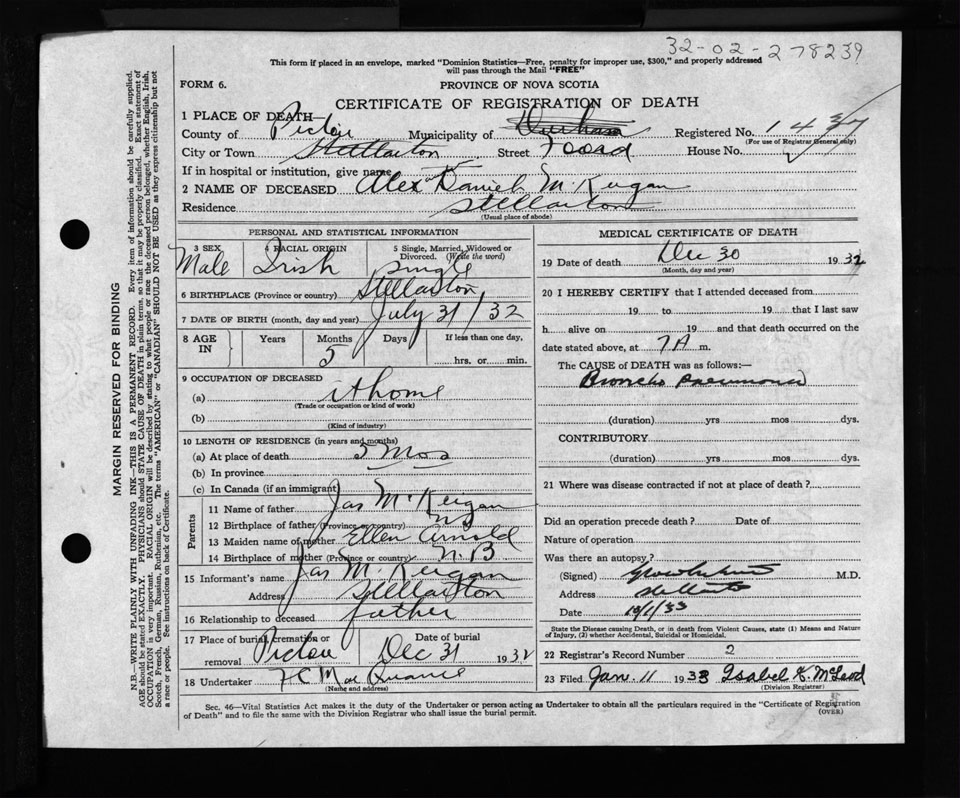 32-02-278239
This form if placed in an envelope, marked "Dominion Statistics—Free, penalty for improper use, $300," and properly addressed
will pass through the Mail "FREE"
FORM 6.
PROVINCE OF NOVA SCOTIA
CERTIFICATE OF REGISTRATION OF DEATH
1 PLACE OF DEATH—
County of Pictou Municipality of Registered No.
(For use of Registrar General only)
City or Town Stellarton Street Foord House No.
If in hospital or institution, give name
2 NAME OF DECEASED Alex Daniel McKeigan
Residence Stellarton
(Usual place of abode)
PERSONAL AND STATISTICAL INFORMATION
3 SEX Male
4 RACIAL ORIGIN Irish
5 Single, Married, Widowed or Divorced. (Write the word) Single
6 BIRTHPLACE (Province or country) Stellarton
7 DATE OF BIRTH (month, day and year) July 31/32
8 AGE IN Years Months 5 Days If less than one day, hrs. or min.
9 OCCUPATION OF DECEASED
(a) at home
(Trade or occupation or kind of work)
(b)
(Kind of industry)
10 LENGTH OF RESIDENCE (in years and months)
(a) At place of death 5 Mos
(b) In province
(c) In Canada (if an immigrant)
Parents
11 Name of father Jas McKeigan
12 Birthplace of father (Province or country) NS
13 Maiden name of mother Ellen Arnold
14 Birthplace of mother (Province or country) N.B
15 Informant's name Jas McKeigan
Address Stellarton
16 Relationship to deceased father
17 Place of burial, cremation or removal Pictou Date of burial Dec 31 1932
18 Undertaker
(Name and address)
MEDICAL CERTIFICATE OF DEATH
19 Date of death Dec 30 1932
(Month, day and year)
20 I HEREBY CERTIFY that I attended deceased from
19 to 19 that I last saw
h alive on 19 and that death occurred on the
date stated above, at 7 A m.
The CAUSE of DEATH was as follows:—
Broncho Pneumonia
(duration) yrs mos dys.
CONTRIBUTORY
(duration) yrs mos dys.
21 Where was disease contracted if not at place of death?
Did an operation precede death? Date of
Nature of operation
Was there an autopsy?
(Signed) M.D.
Address Stellarton
Date 10/1/33
State the Disease causing Death, or in death from Violent Causes, state (1) Means and
Nature of Injury, (2) whether Accidental, Suicidal or Homicidal.
22 Registrar's Record Number 2
23 Filed Jan. 11 1933 Isabel K. McLeod
(Division Registrar)
Sec. 46—Vital Statistics Act makes it the duty of the Undertaker or person acting as Undertaker to obtain all the particulars required in the "Certificate of Registration
of Death" and to file the same with the Division Registrar who shall issue the burial permit.
(OVER)
MARGIN RESERVED FOR BINDING
N.B.—WRITE PLAINLY WITH UNFADING INK—THIS IS A PERMANENT RECORD. Every item of information should be carefully supplied.
AGE should be stated EXACTLY. PHYSICIANS should STATE CAUSE OF DEATH in plain terms, so that it may be properly classified. Exact statement of
OCCUPATION is very important. RACIAL ORIGIN will be described by stating to what people or race the deceased person belonged, whether English, Irish,
Scotch, French, German, Russian, Ruthenian, etc. The terms "AMERICAN" or "CANADIAN" SHOULD NOT BE USED as they express citizenship but not
a race or people. See instructions on back of Certificate.